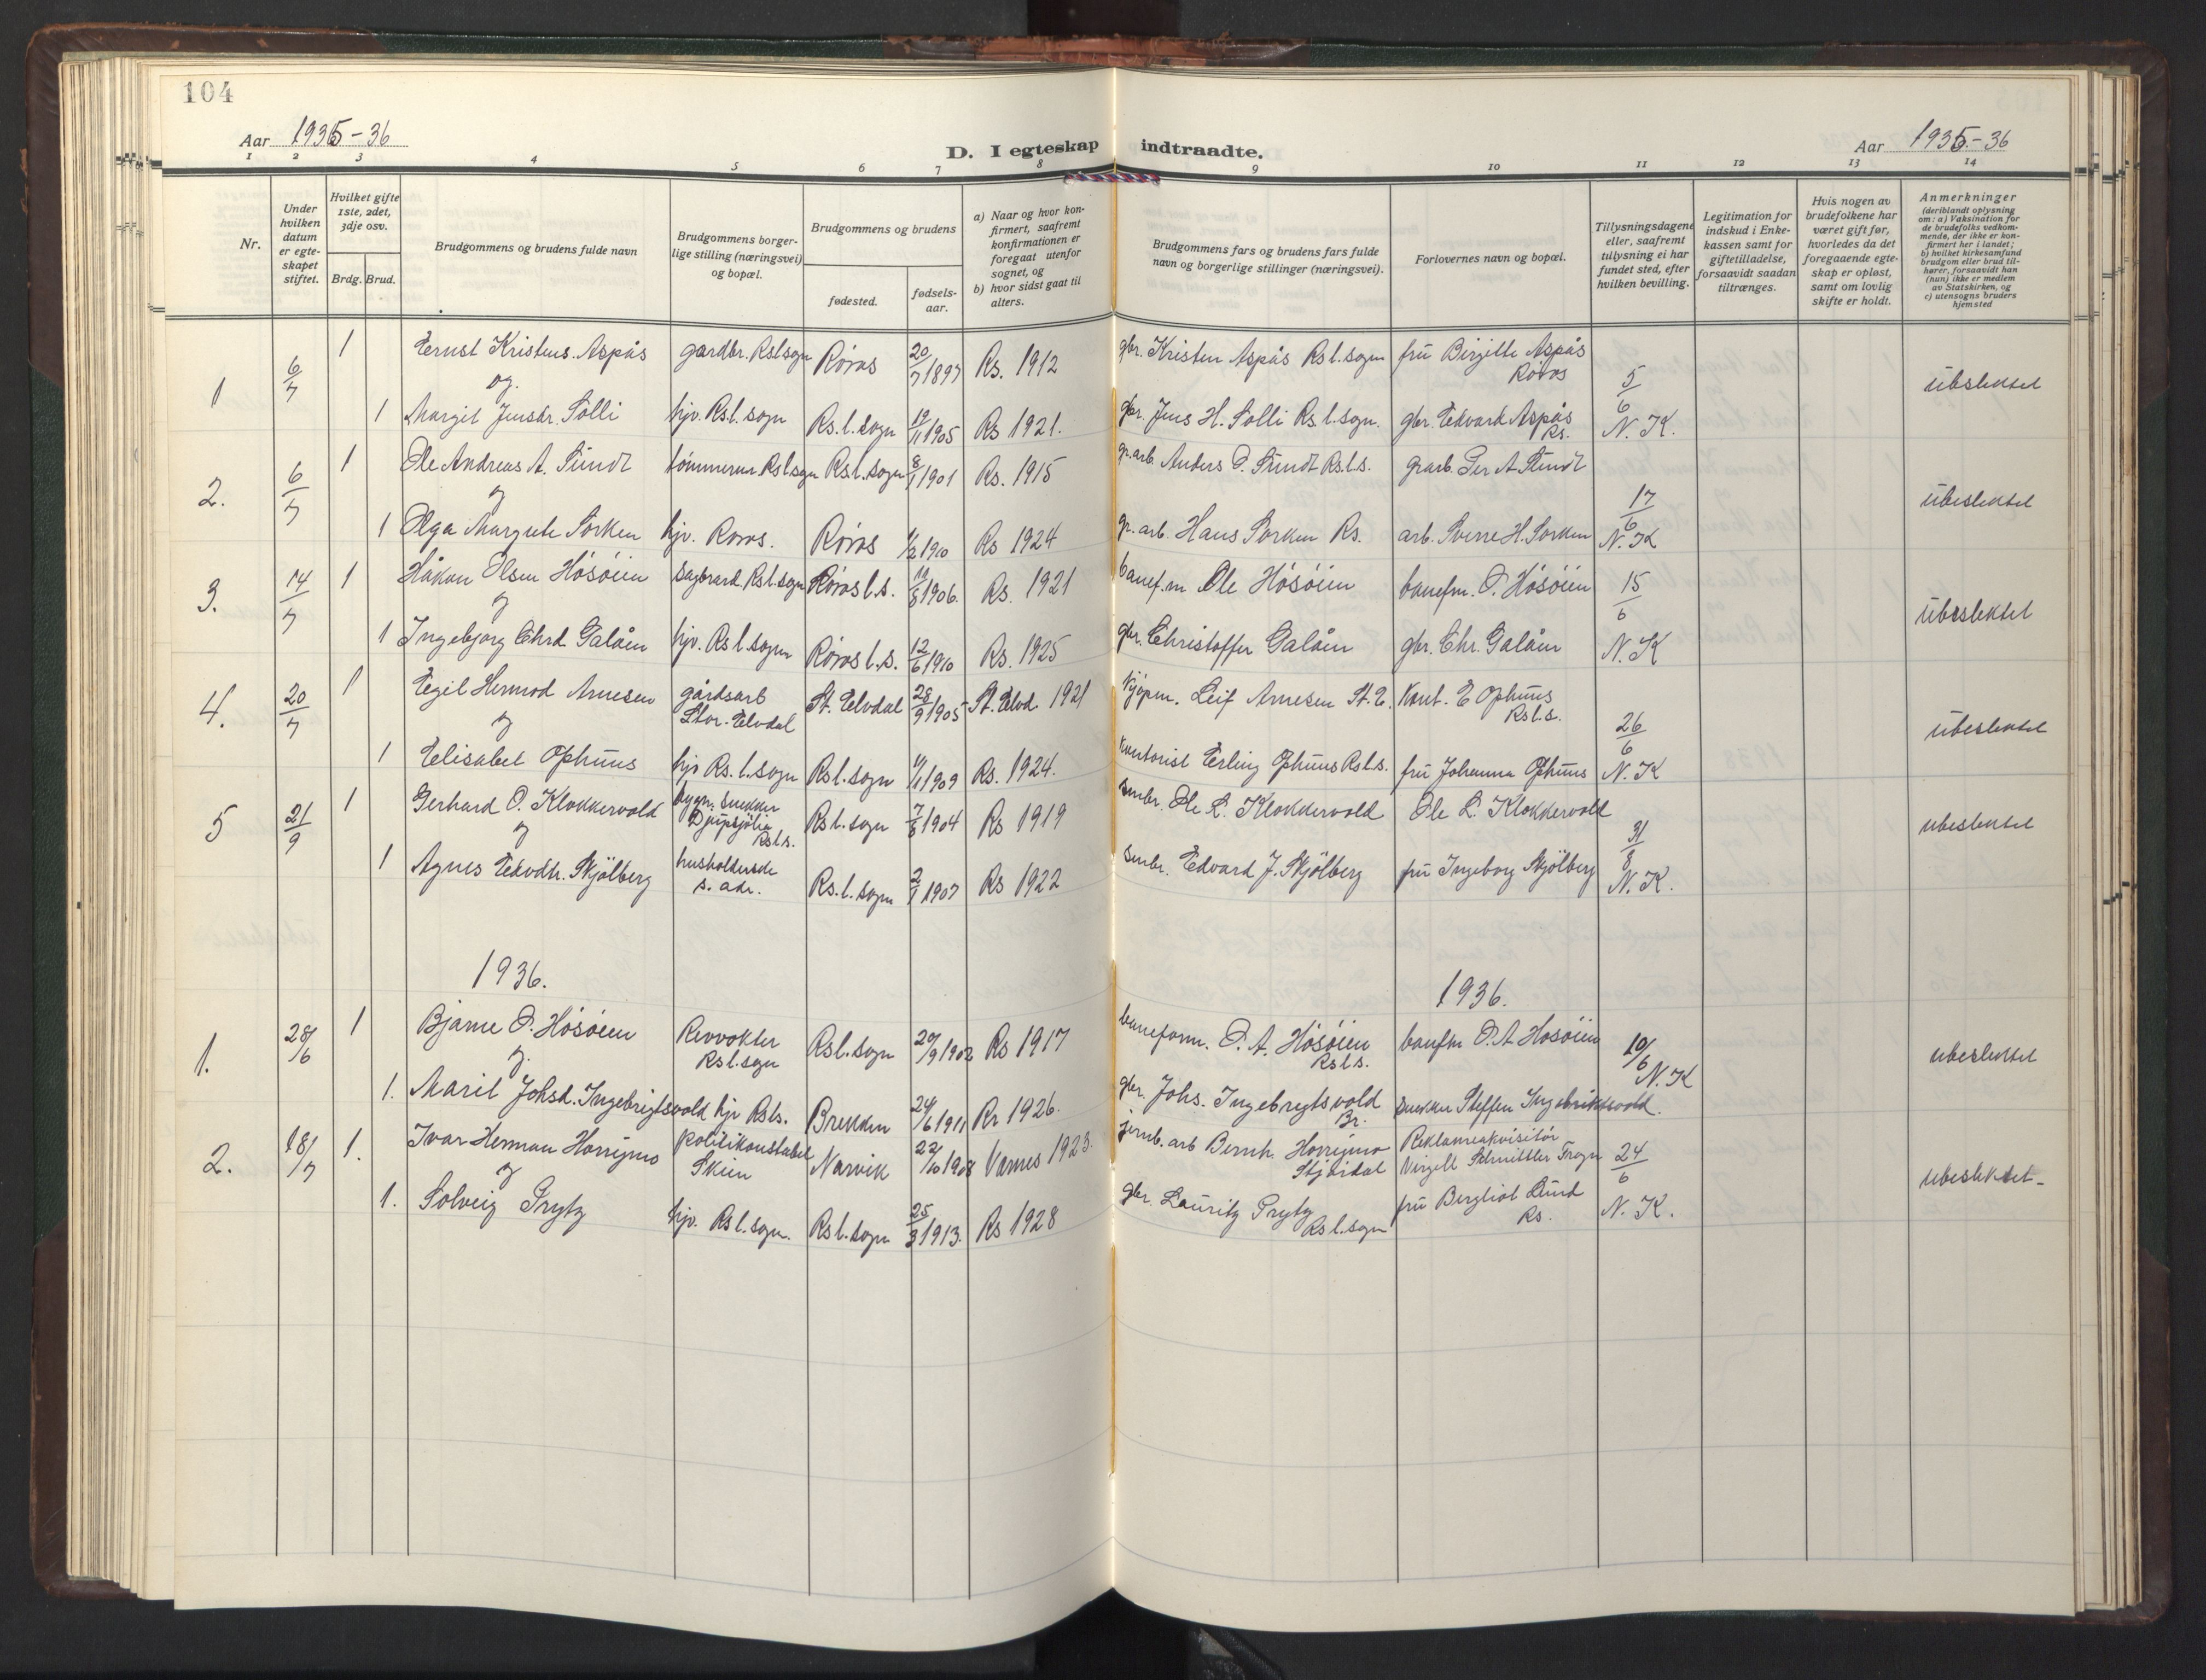 104
Aar 1935-36
D. I egteskap indtraadte.
Aar 1935-36
1 2 3 4 5 6 7 8 9 10 11 12 13 14
Nr.
Under hvilken datum er egteskapet stiftet.
Hvilket gifte 1ste, 2det, 3dje osv.
Brdg. Brud.
Brudgommens og brudens fulde navn
Brudgommens borgerlige stilling (næringsvei) og bopæl.
Brudgommens og brudens
fødested.
fødselsaar.
a) Naar og hvor konfirmert, saafremt konfirmationen er foregaat utenfor sognet, og
b) hvor sidst gaat til alters.
Brudgommens fars og brudens fars fulde navn og borgerlige stillinger (næringsvei).
Forlovernes navn og bopæl.
Tillysningsdagene eller, saafremt tillysning ei har fundet sted, efter hvilken bevilling.
Legitimation for indskud i Enkekassen samt for giftetilladelse, forsaavidt saadan tiltrænges.
Hvis nogen av brudefolkene har været gift før, hvorledes da det foregaaende egteskap er opløst, samt om lovlig skifte er holdt.
Anmerkninger (deriblandt oplysning om: a) Vaksination for de brudefolks vedkommende, der ikke er konfirmert her i landet; b) hvilket kirkesamfund brudgom eller brud tilhører, forsaavidt han (hun) ikke er medlem av Statskirken, og c) utensogns bruders hjemsted
1 6/7 1 Ernst Kristens. Aspås gardbr. Rsl.sogn Röros 20/7 1897 Rs. 1912 gbr. Kristen Aspås Rs l. sogn fru Birgitte Aspås Röros 5/6 N. K. ubslektet
og
1 Margit Jensdr. Solli hjv. Rs. l. sogn Rs. l. sogn 19/11 1905 Rs 1921. gbr. Jens H. Solli Rs. l. sogn. gbr. Edvard Aspås Rs.
2. 6/7 1 Ole Andreas A. Sundt tömmerm. Rsl sogn Rs. l. sogn 8/1 1901 Rs. 1915 gr. arb. Anders O. Sundt Rs l. s. grarb. Per A Sundt 17/6 N. K ubeslektet
og
1 Olga Margrete Sorken hjv. Roros. Röros 1/2 1910 Rs 1924 gr. arb. Hans Sorken Rs. arb. Sverre H. Sorken
3. 14/7 1 Håkon Olsen Hösöien Sagbrard. Rs l. sogn Röros l. s. 10/8 1906. Rs. 1921 banef.m Ole Hösöien banefm. O. Hösöien 15/6 N. K ubeslektet
og
1 Ingebjörg Chrd. Galåen hjv. Rs l. sogn Röros l. s. 12/6 1910 Rs. 1925 gbr. Christoffer Galåen gbr. Chr. Galåen
4. 20/7 1 Egil Hermod Arnesen gårdsarb Stor-Elvdal St. Elvdal 28/9 1905 St. Elvd. 1921 kjöpm. Leif Arnesen St. E. Kont. E Ophuus Rs l. s. 26/6 N. K ubeslektet
og
1 Elisabet Ophuus hjv Rs. l. sogn Rs l. sogn 11/1 1909 Rs. 1924. kontorist Erling Ophuus Rs l. s. fru Johanna Ophuus
5 21/9 1 Gerhard O. Klokkervold bygn. snekker Djupsjölia Rs l s. Rs l. sogn 7/8 1904 Rs 1919 smbr. Ole L. Klokkervold Ole L. Klokkervold 31/8 N. K. ubeslektet
og
1 Agnes Edvdtr. Skjölberg husholderske s. adr. Rs. l. sogn 2/1 1907 Rs 1922 smbr. Edvard J. Skjölberg fru Ingeborg Skjölberg
1936. 1936.
1. 28/6 1 Bjarne O. Hösöien Revvokter Rs l. sogn Rs l. sogn 20/9 1902 Rs 1917 baneform. O. A. Hösöien Rs l s. banefm O. A Hosöien 10/6 N. K ubeslektet
og
1. Marit Johsd. Ingebrigtsvold hjv Rs l s. Brekken 24/6 1911 Rr 1926. gbr. Johs. Ingebrigtsvold Br. snekker Steffen Ingebriktsvold.
2. 18/7 1. Ivar Herman Horrigmo politikonstabel Skien Narvik 22/10 1908 Vernes 1923. jernb. arb Bernh. Horrigmo Stjördal Reklameakvisitör Virgell Schnitler Trogn 24/6 N. K. ubeslektet
og
1. Solveig Prytz hjv. Rs l. sogn. Rs l. sogn 25/3 1913. Rs 1928 gbr. Lauritz Prytz Rs l. sogn fru Bergliot Lund Rs.